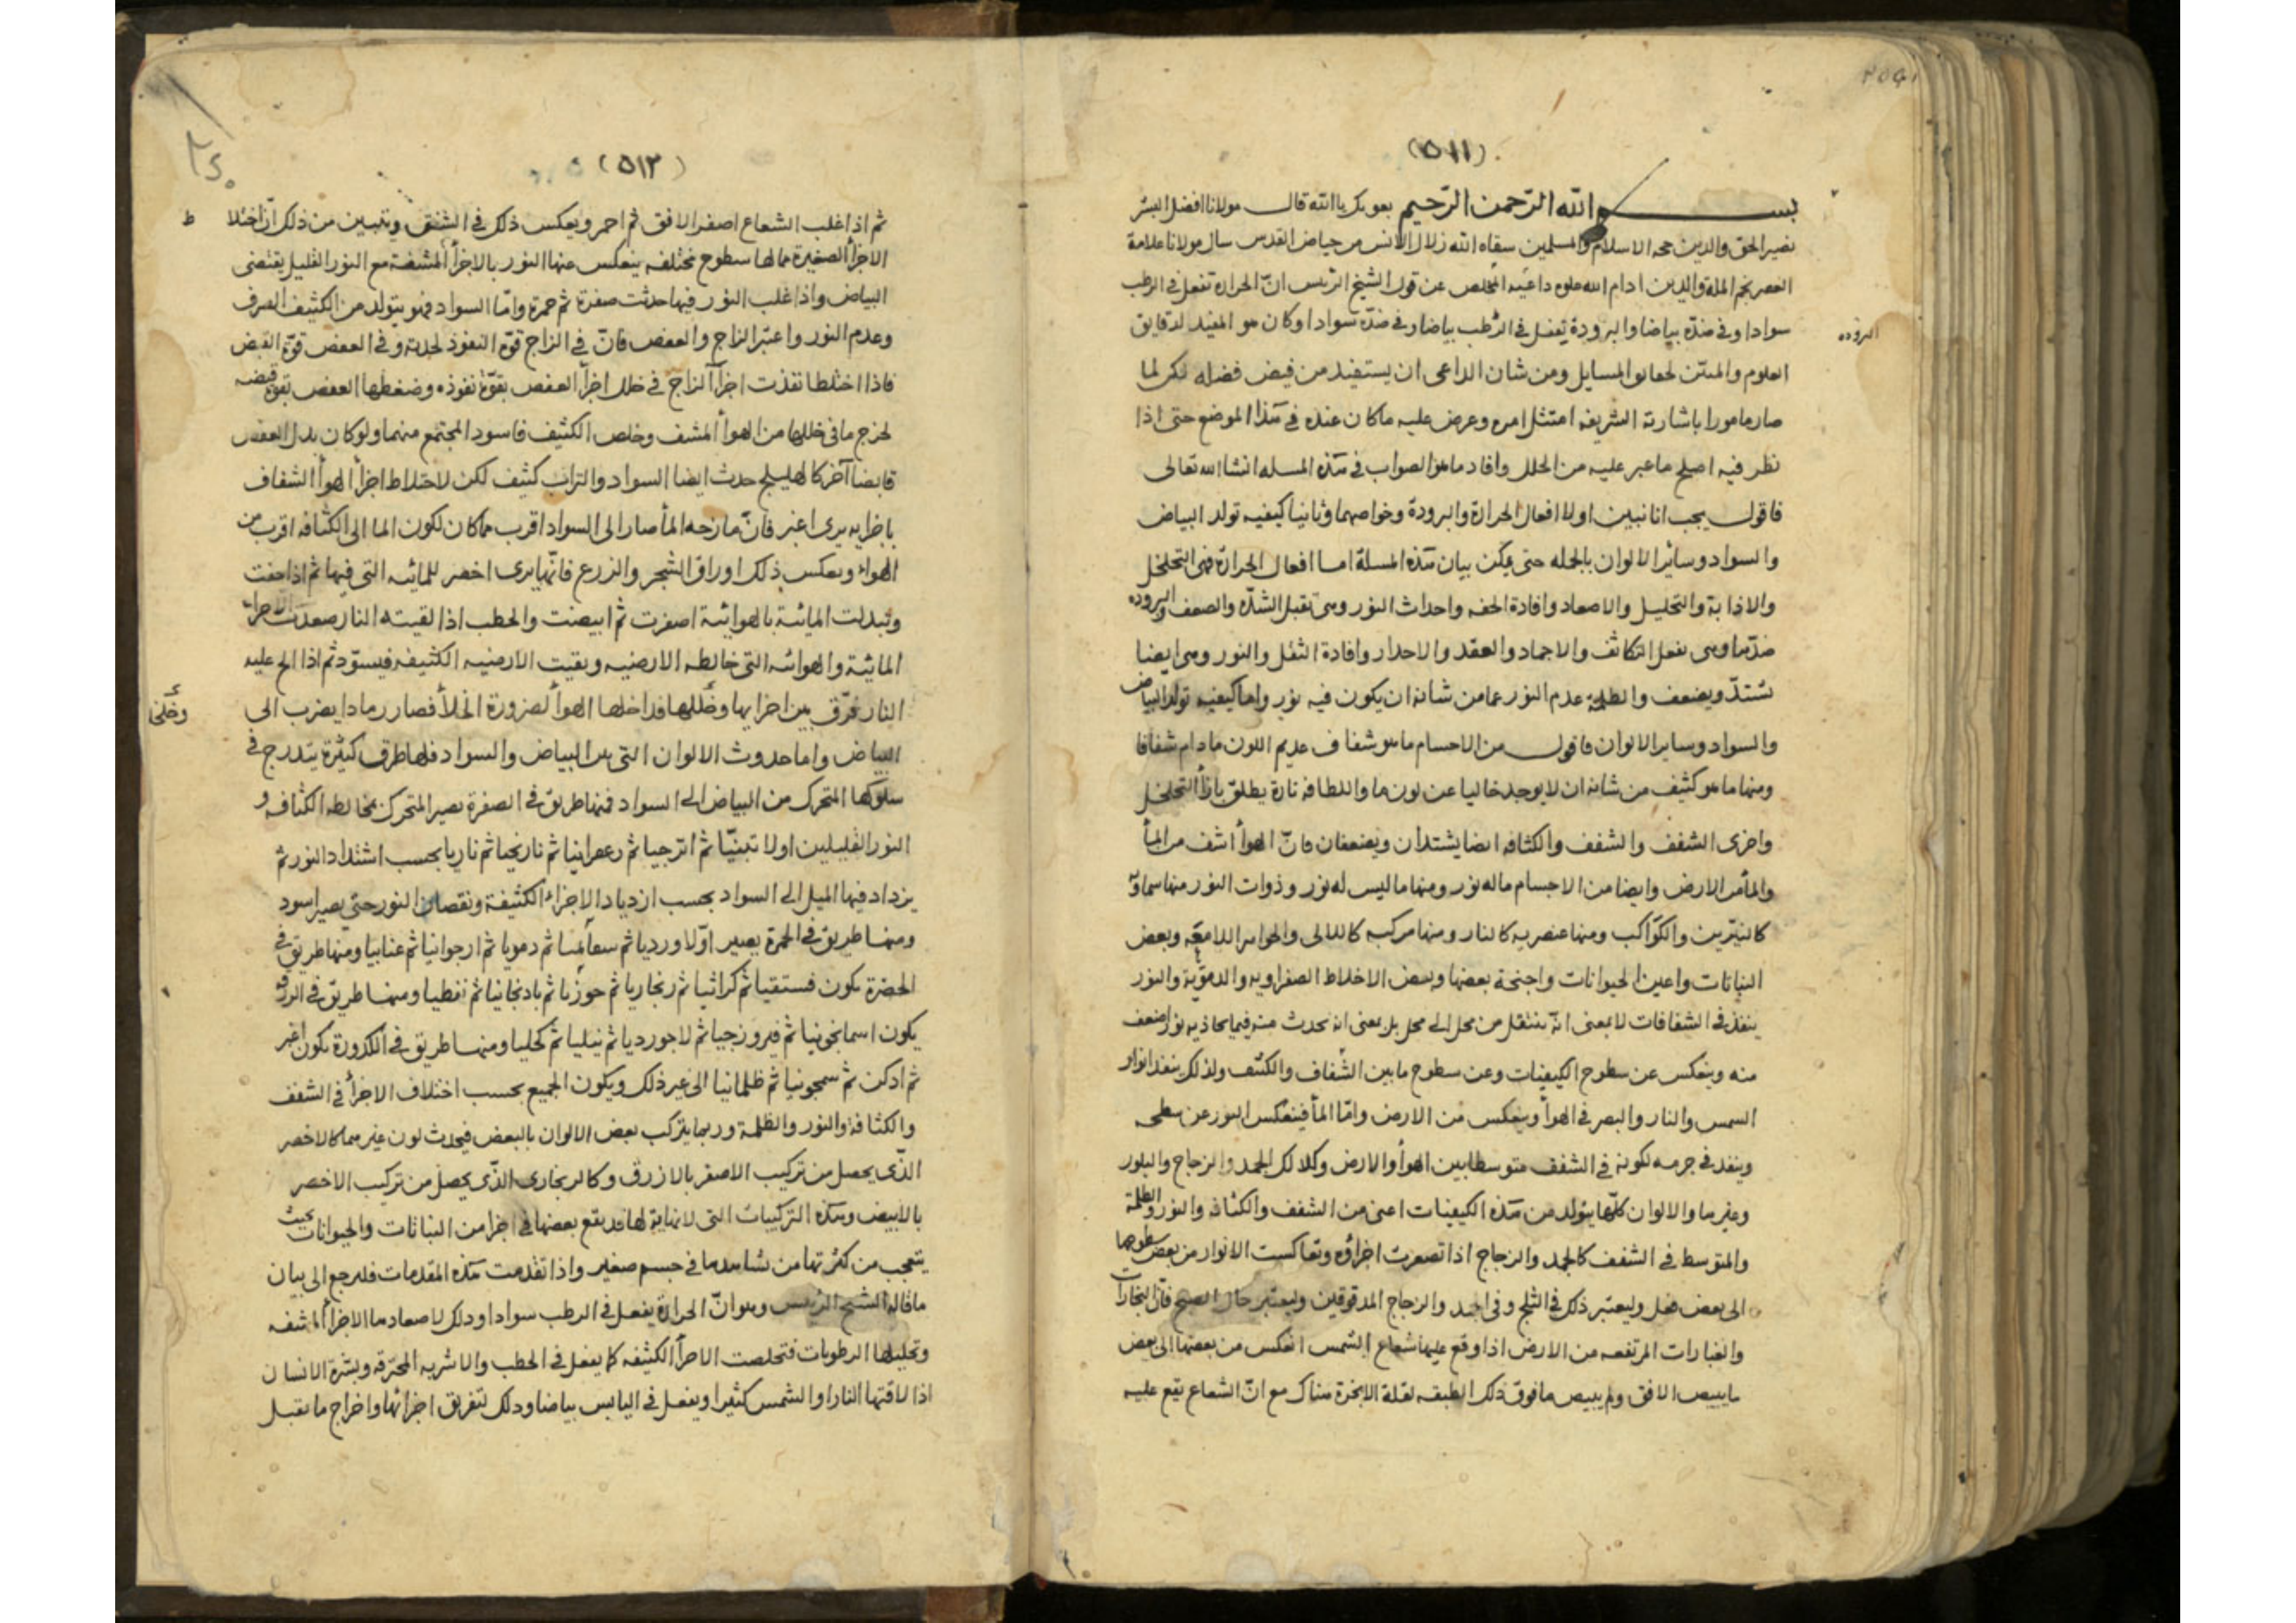 (٥١١)
بسم الله الرحمن الرحيم بعونك يا الله قال مولانا افضل البشر
نصير الحق والدين حجه الاسلام والمسلمين سقاه الله زلال الانس من حياض القدس سال مولانا علامة
العصر نجم الملة والدين ادام الله علوه داعيه المخلص عن قول الشيخ الرئيس انّ الحرارة تفعل فى الرطب
سوادا وفى ضدّه بياضا والبرودة يفعل فى الرّطب بياضا وفى ضدّه سوادا وكان هو المفيد لدقايق
البرودة
العلوم والمبيّن لحقايق المسايل ومن شان الداعى ان يستفيد من فيض فضله لكن لما
صار مامورا باشارته الشريفه امتثل امره وعرض عليه ما كان عنده فى هذا الموضع حتى اذا
نظر فيه اصلح ما عبر عليه من الخلل وافاد ما هو الصواب فى هذه المسله انشا الله تعالى
فاقول يجب ان نبين اولا افعال الحرارة والبرودة وخواصهما وثانيا كيفيه تولد البياض
والسواد وسائر الالوان بالجمله حتى يمكن بيان هذه المسلة اما افعال الحرارة فهى التخلخل
والاذابة والتحليل والاصعاد وافادة الخفه واحداث النور وهى تقبل الشدّه والضعف والبروده
ضدّها وهى تفعل التكاثف والاجماد والعقد والاحدار وافادة الثقل والنور وهى ايضا
تشتدّ ويضعف والظلمة عدم النور عما من شانه ان يكون فيه نور واما كيفيه تولد البياض
والسواد وساير الالوان فاقول من الاجسام ما هو شفاف عديم اللون ما دام شفافا
ومنها ما هو كثيف من شانه ان لا يوجد خاليا عن لون ما واللطافه تارة يطلق بازأ التخلخل
واخرى الشفف والشفف والكثافه ايضا يشتدان ويضعفان فانّ الهوأ اشف من المأ
والمأ من الارض وايضا من الاجسام ما له نور ومنها ما ليس له نور وذوات النور منها سماويّه
كالنيّرين والكواكب ومنها عنصريه كالنار ومنها مركبه كاللالى والجواهر اللامعّه وبعض
النباتات واعين الحيوانات واجنحة بعضها وبعض الاخلاط الصفراويه والدمويّة والنور
ينفذ فى الشفافات لا بمعنى انّه ينتقل من محل الى محل بل بمعنى انه يحدث منه فيما يحاذيه نور اضعف
منه وينعكس عن سطوح الكيفيات وعن سطوح ما بين الشّفاف والكثيف ولذلك ينفذ انوار
الشمس والنار والبصر فى الهوأ وينعكس من الارض وامّا المأ فينعكس النور عن سطحه
وينفذ فى جرمه لكونه فى الشفف متوسطا بين الهوأ والارض وكذلك الجمد والزجاج والبلور
وغيرها والالوان كلّها يتولد من هذه الكيفيات اعنى من الشفف والكثافه والنور والظلمة
والمتوسط فى الشفف كالجمد والزجاج اذا تصغرت اجزاؤه وتعاكست الانوار من بعض سطوحها
الى بعض فعل وليعتبر ذلك فى الثلج وفى الجمد والزجاج المدقوقين وليعتبر حال الصبح فانّ البخارات
والغبارات المرتفعه من الارض اذا وقع عليها شعاع الشمس انعكس من بعضها الى بعض
ما يبيض الافق ولم يبيض ما فوق ذلك الطبقه لقلة الابخرة هناك مع انّ الشعاع يقع عليه
(٥١٢)
ثم اذا غلب الشعاع اصفر الافق ثم احمر ويعكس ذلك فى الشفق ويتبين من ذلك انّ اختلا
الاجزأ الصغيرة مما لها سطوح مختلفه ينعكس عنها النور بالاجزأ المشفة مع النور القليل يقتضى
البياض واذا غلب النور فيها حدثت صفرة ثم حمرة وامّا السواد فهو يتولد من الكثيف الصرف
وعدم النور واعتبر الزاج والعفص فانّ فى الزاج قوّة النفوذ لحدته وفى العفص قوّة القبض
فاذا اختلطا نفذت اجزأ الزاج فى خلل اجزأ العفص بقوّة نفوذه وضغطها العفص بقوّة قبضه
لخرج ما فى خللها من الهوأ المشف وخلص الكثيف فاسود المجتمع منهما ولو كان بدل العفص
قابضا آخر كالهليلج حدث ايضا السواد والتراب كثيف لكن لاختلاط اجزأ الهوأ الشفاف
باجزايه يرى اغبر فانّ مازجه المأ صار الى السواد اقرب مما كان لكون الما الى الكثافه اقرب من
الهواء وبعكس ذلك اوراق الشجر والزرع فانّها يرى اخضر للمائيه التى فيها ثم اذا جفت
وتبدلت المائية بالهوائية اصفرت ثم ابيضت والحطب اذا لقيته النار صعدت الاجزاء
المائية والهوائيه التى خالطه الارضيه وبقيت الارضيه الكثيفه فيسوّد ثم اذا الح عليه
النار فرّق بين اجزايها وخللها فداخلها الهوأ لضرورة الخلأ فصار رمادا يضرب الى
البياض واما حدوث الالوان التى بين البياض والسواد فلها طرق كثيرة يتدرج فى
سلوكها المتحرك من البياض الى السواد فمنها طريق فى الصفرة يصير المتحرك بمخالطه الكثافه و
النور القليلين اولا تبنيّا ثم اترجيا ثم زعفرانيا ثم نارنجيا ثم ناريا بحسب اشتداد النور ثم
يزداد فيها الميل الى السواد بحسب ازدياد الاجزاء الكثيفة ونقصان النور حتى يصير اسود
ومنها طريق فى الحمرة يصير اوّلا ورديا ثم ثم دمويا ثم ارجوانيا ثم عنابيا ومنها طريق فى
الخضرة يكون فستقيا ثم كراثيا ثم زنجاريا ثم جوزيا ثم باذنجانيا ثم نفطيا ومنها طريق فى الزرقه
يكون اسمانجونيا ثم فيروزجيا ثم لاجورديا ثم نيليا ثم كحليا ومنها طريق فى الكدورة يكون اغبر
ثم ادكن ثم سمجونيا ثم ظلمانيا الى غير ذلك ويكون الجميع بحسب اختلاف الاجزأ فى الشفف
والكثافة والنور والظلمة وربما يتركب بعض الالوان بالبعض فيحدث لون غيرهما كالاخضر
الذّى يحصل من تركيب الاصفر بالازرق وكالزنجارى الذّى يحصل من تركيب الاخضر
بالابيض وهذه التركيبات التى لا نهاية لها قد يقع بعضها فى اجزا من النباتات والحيوانات بحيث
يتعجب من كثرتها من شاهدها فى جسم صغير واذا تقدمت هذه المقدمات فلنرجع الى بيان
ما قاله الشيخ الرئيس وهو انّ الحرارة يفعل فى الرطب سوادا وذلك لاصعادها الاجزأ المشفه
وتحليلها الرطوبات فتخلصت الاجزأ الكثيفه كما يفعل فى الحطب والاشربه المحترقه وبشرة الانسان
اذا لاقتها النار او الشمس كثيرا ويفعل فى اليابس بياضا وذلك بتفريق اجزائها واخراج ما تقبل